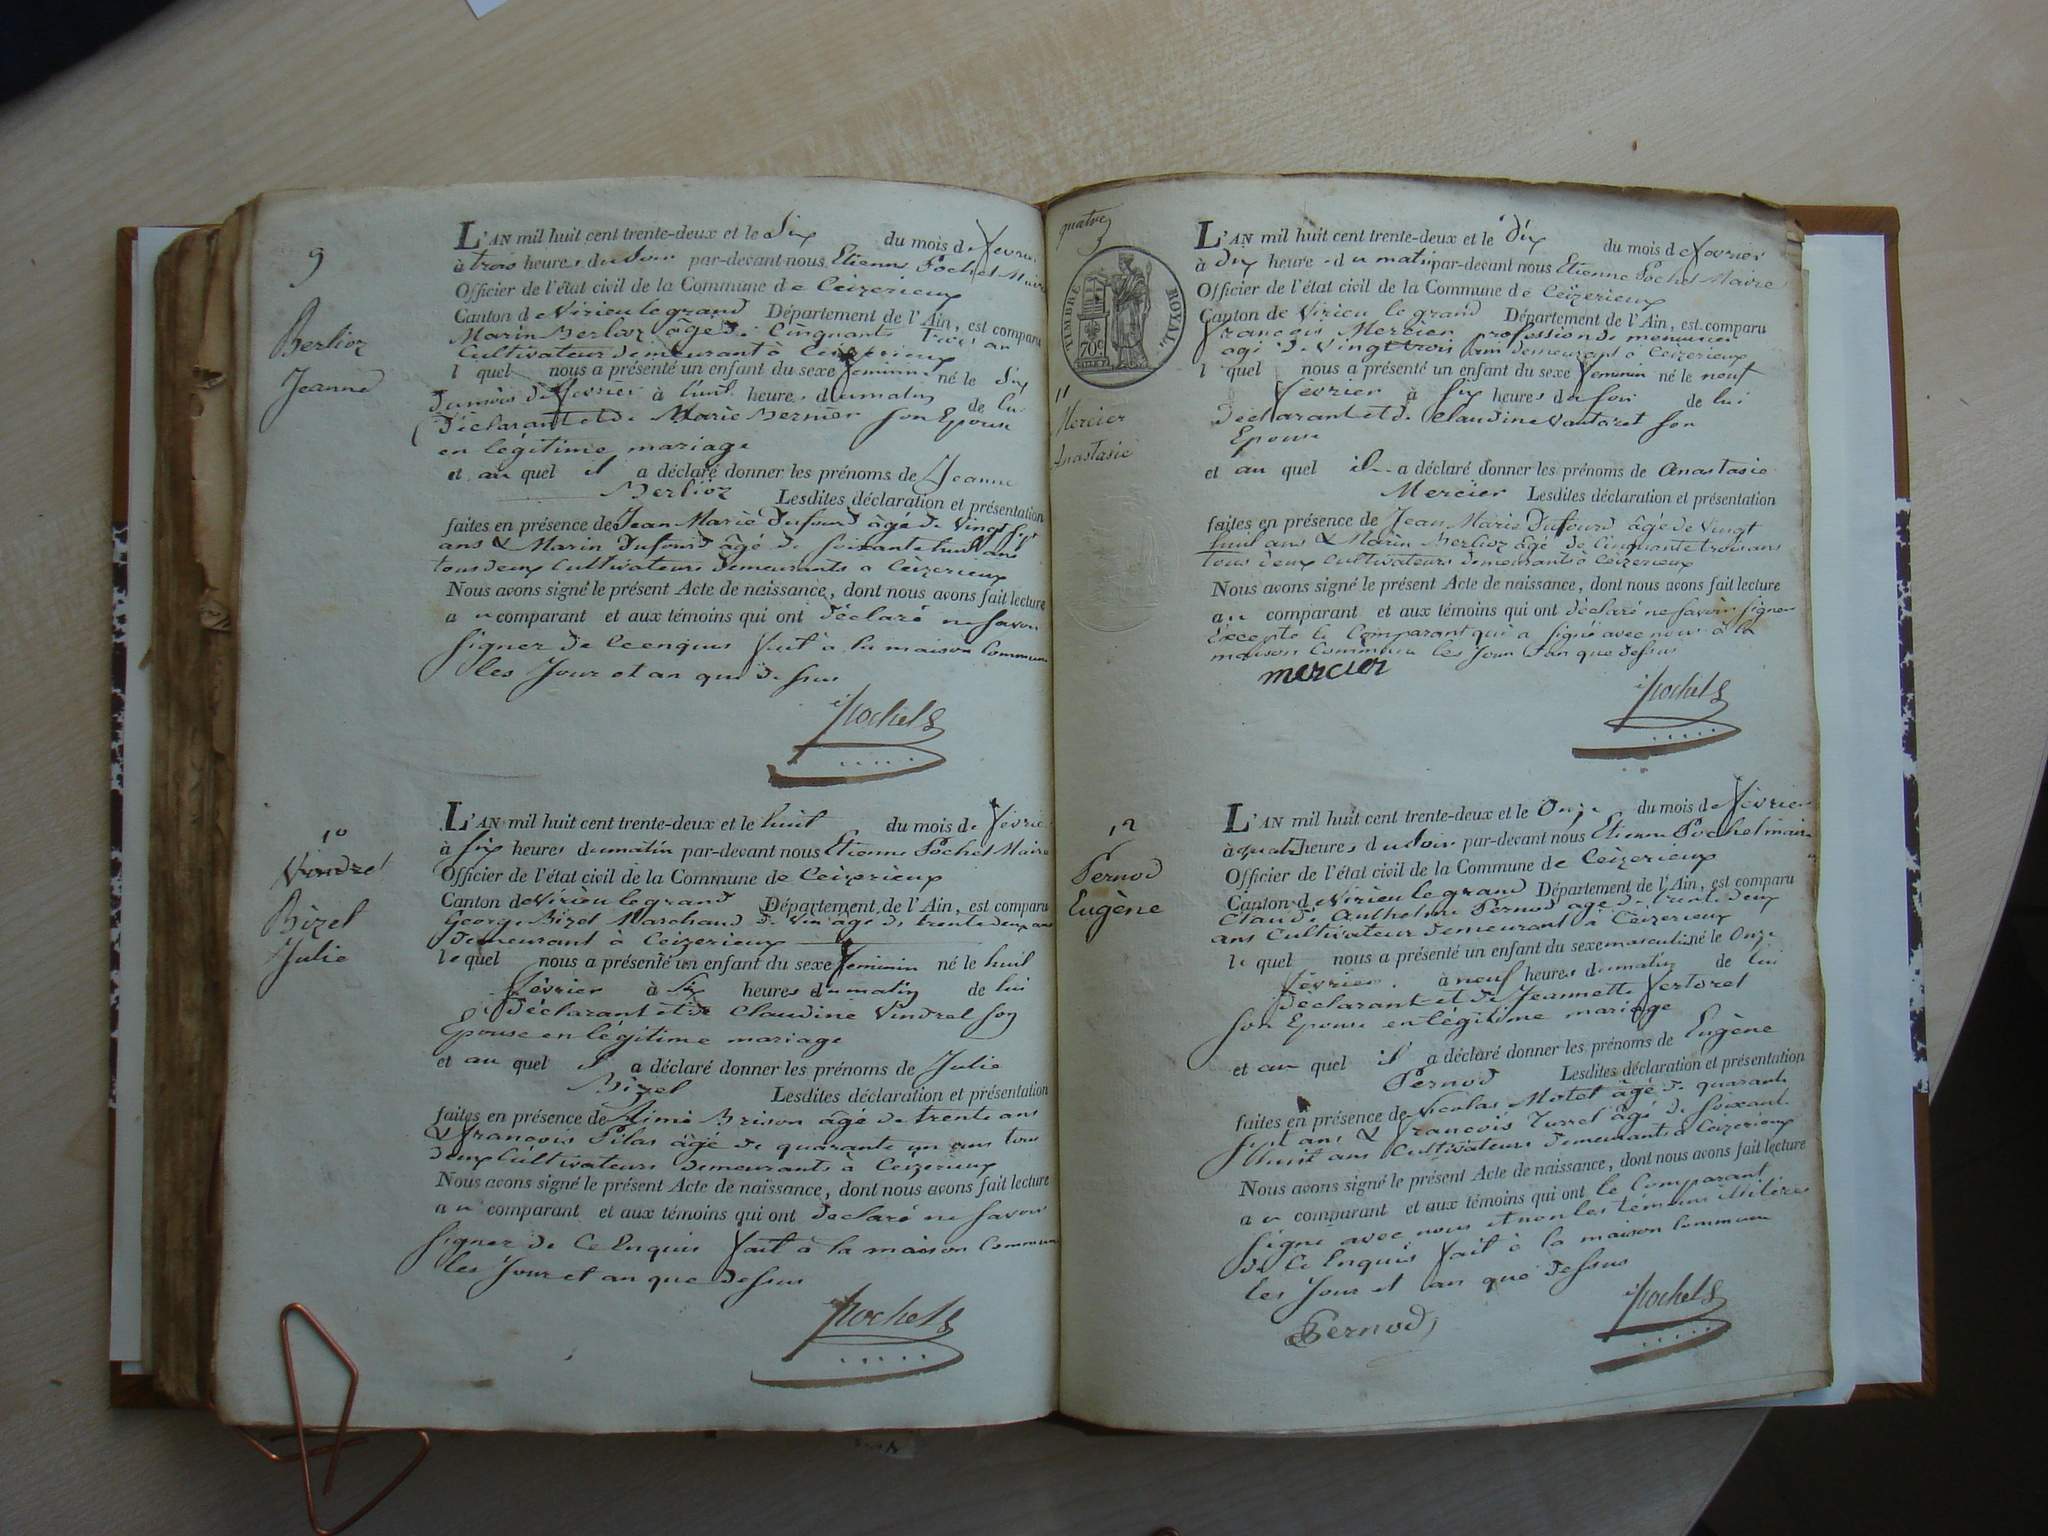 9
Berlioz
Jeanne
L'AN mil huit cent trente-deux et le Six du mois de février
à trois heures du soir par-devant nous Etienne Pochet Maire
Officier de l'état civil de la Commune de Ceizerieux
Canton de Virieu le grand Département de l'Ain, est comparu
Marin Berlioz âgé de Cinquante trois an
Cultivateur demeurant à Ceizerieux
l quel nous a présenté un enfant du sexe feminin né le Six
du mois de février à huit heures du matin de lui
Déclarant et de Marie Bernier son Epouse
en légitime mariage
et au quel il a déclaré donner les prénoms de Jeanne
Berlioz Lesdites déclaration et présentation
faites en présence de Jean Marie Dufourd âgé de vingt sept
ans & Marin Dufourd âgé de soixante huit ans
tous deux Cultivateurs demeurants a Ceizerieux
Nous avons signé le présent Acte de naissance, dont nous avons fait lecture
au comparant et aux témoins qui ont déclaré ne savoir
signer de ce enquis fait à la maison Commune
les Jour et an que dessus
Pochet
10
Vindret
Bizel
Julie
L'AN mil huit cent trente-deux et le huit du mois de février
à six heures du matin par-devant nous Etienne Pochet Maire
Officier de l'état civil de la Commune de Ceizerieux
Canton de Virieu le grand Département de l'Ain, est comparu
George Bizel Marchand de vin âgé de trente deux ans
demeurant à Ceizerieux
le quel nous a présenté un enfant du sexe feminin né le huit
février à six heures du matin de lui
Déclarant et de Claudine Vindret son
Epouse en légitime mariage
et au quel il a déclaré donner les prénoms de Julie
Bizel Lesdites déclaration et présentation
faites en présence de Aimé Brison âgé de trente ans
& françois Pilas âgé de quarante un ans tous
deux Cultivateurs demeurants a Ceizerieux
Nous avons signé le présent Acte de naissance, dont nous avons fait lecture
au comparant et aux témoins qui ont declaré ne savoir
signer de Ce Enquis fait à la maison Commune
les Jour et an que dessus
Pochet
quatre
TIMBRE ROYAL.
70c
11
Mercier
Anastasie
L'AN mil huit cent trente-deux et le dix du mois de février
à dix heure du matin par-devant nous Etienne Pochet Maire
Officier de l'état civil de la Commune de Ceizerieux
Canton de Virieu le grand Département de l'Ain, est comparu
françois Mercier profession de menuisier
agé de vingt trois ans demeurant a Ceizerieux
l quel nous a présenté un enfant du sexe feminin né le neuf
février à six heures du soir de lui
Déclarant et de Claudine son
Epouse
et au quel il a déclaré donner les prénoms de Anastasie
Mercier Lesdites déclaration et présentation
faites en présence de Jean Marie Dufourd âgé de vingt
huit ans & Marin Berlioz âgé de Cinquante trois ans
tous deux Cultivateurs demeurants à Ceizerieux
Nous avons signé le présent Acte de naissance, dont nous avons fait lecture
au comparant et aux témoins qui ont déclaré ne savoir signer
Excepté le Comparant qui a signé avec nous à la
maison Commune les Jour & an que dessus
mercier
Pochet
12
Pernod
Eugène
L'AN mil huit cent trente-deux et le Onze du mois de février
à quatre heures du soir par-devant nous Etienne Pochet maire
Officier de l'état civil de la Commune de Ceizerieux
Canton de Virieu le grand Département de l'Ain, est comparu
Claude Anthelme Pernod age de trente deux
ans Cultivateur demeurant à Ceizerieux
le quel nous a présenté un enfant du sexe masculin né le Onze
février à neuf heures du matin de lui
Déclarant et de Jeannette Vertoret
son Epouse en légitime mariage
et au quel il a déclaré donner les prénoms de Eugène
Pernod Lesdites déclaration et présentation
faites en présence de Nicolas Motet âgé de quarante
sept ans & françois Turrel âgé de soixante
huit ans Cultivateurs demeurants a Ceizerieux
Nous avons signé le présent Acte de naissance, dont nous avons fait lecture
au comparant et aux témoins qui ont le Comparant
signé avec nous et non les témoins illitéré
de Ce Enquis fait à la maison Commune
les Jour et an que dessus
Pernod
Pochet